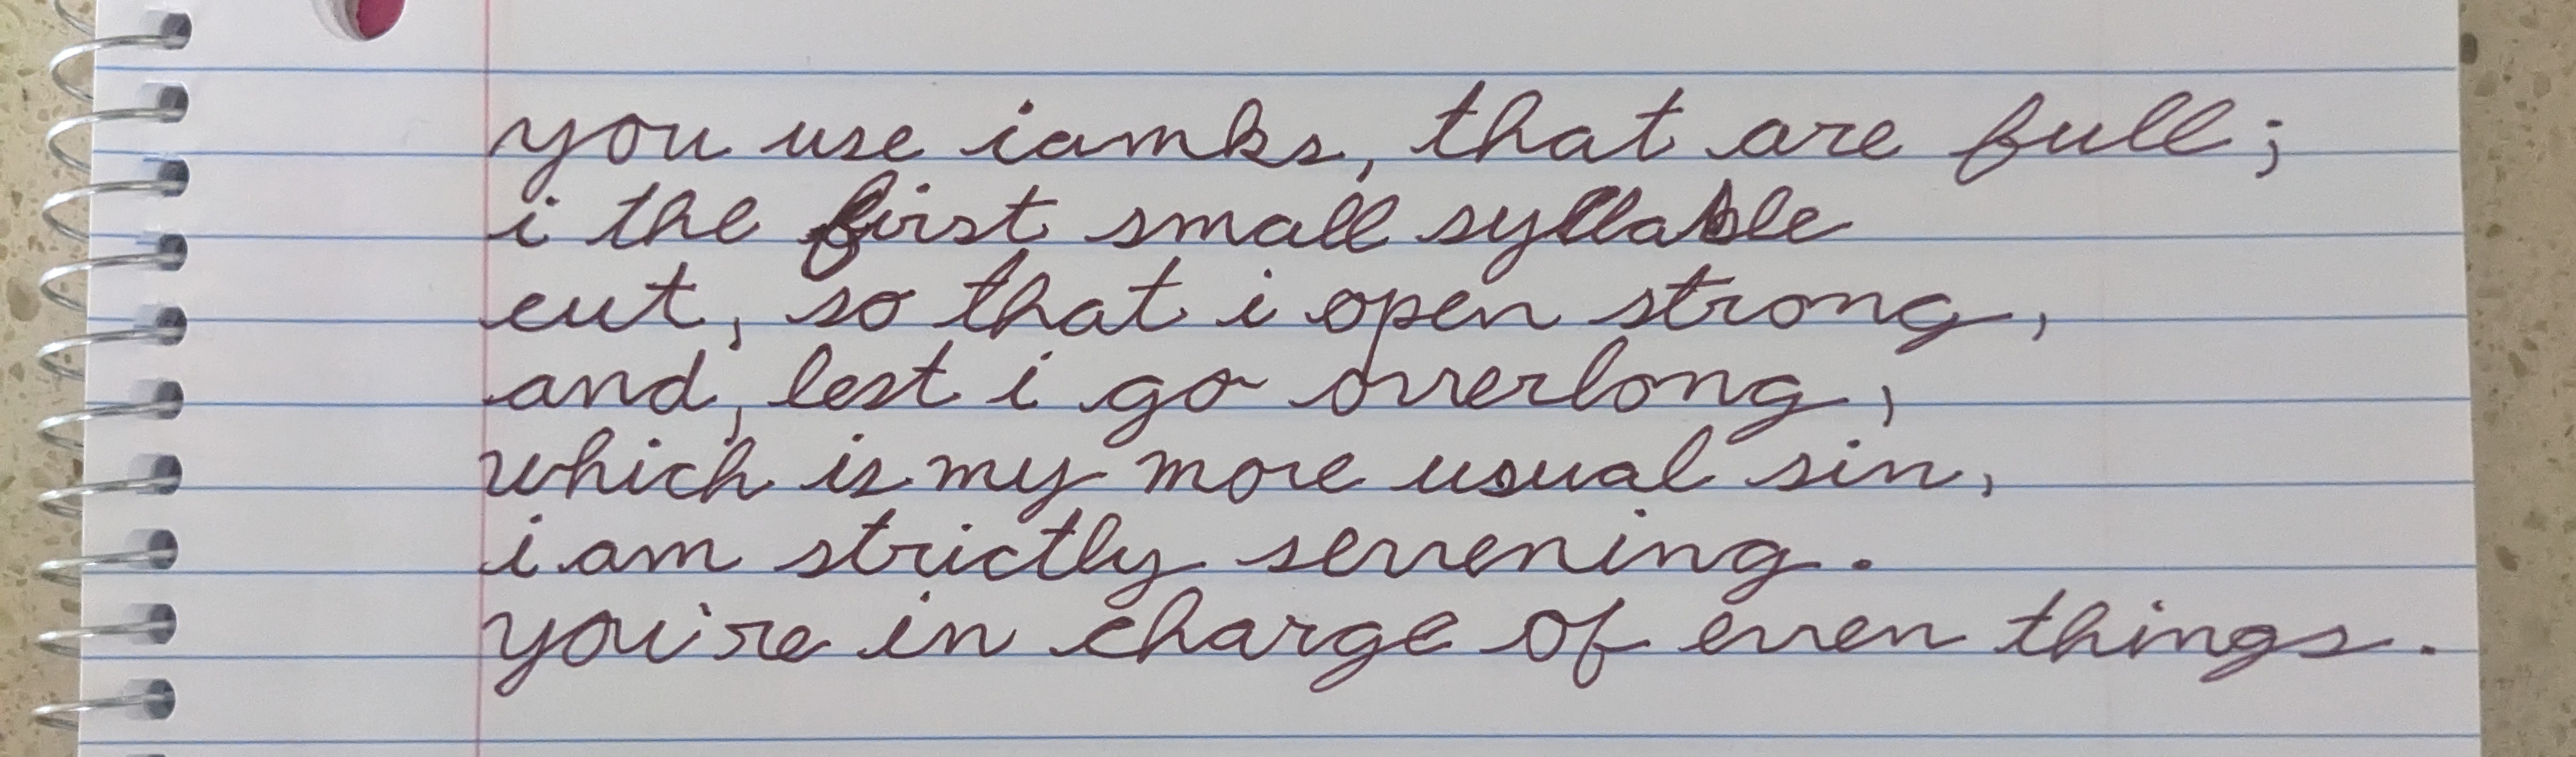 you use iambs, that are full;
i the first small syllable
cut, so that i open strong,
and, lest i go overlong,
which is my more usual sin,
i am strictly sevening.
you're in charge of even things.